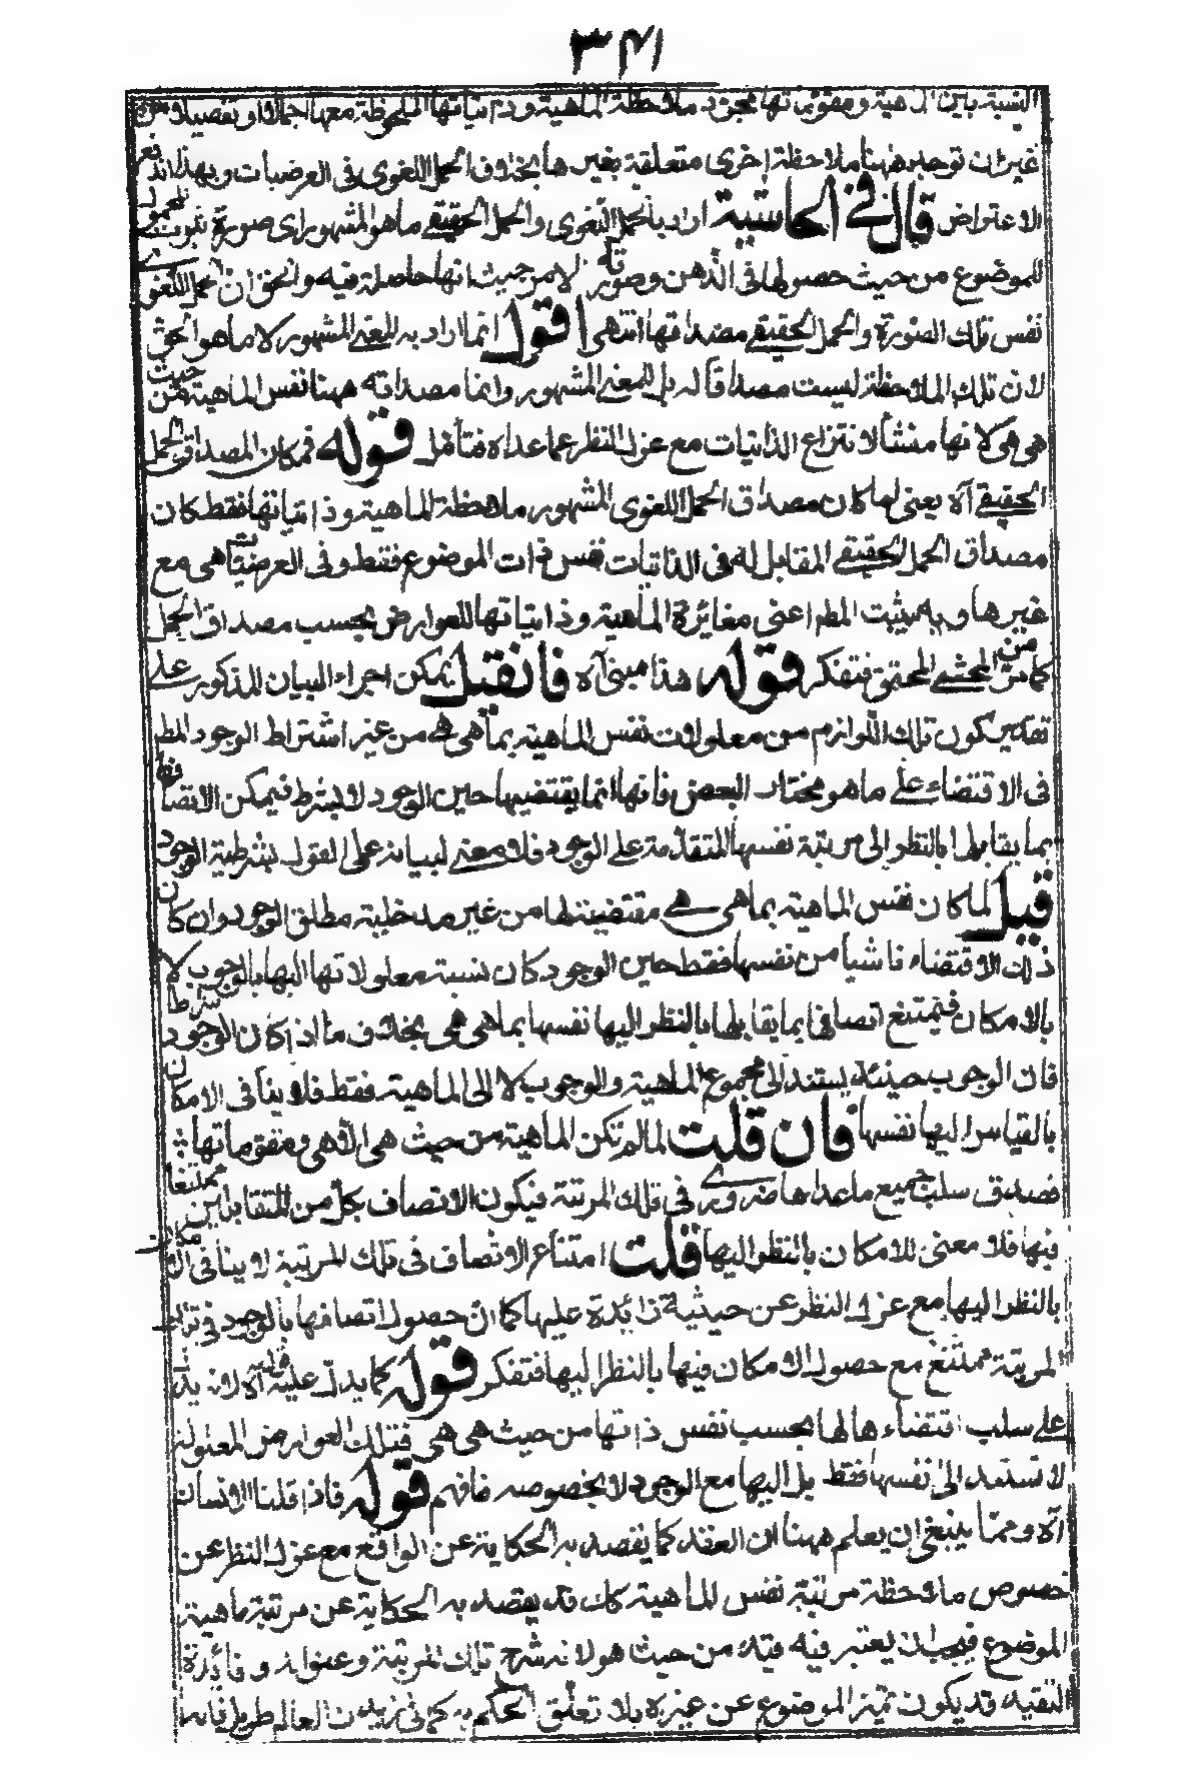 ٣٤١
النسبة بين الماهية ومقوماتها مجرد ملاحظة الماهية وذاتياتها الملحوظة معها اجمالا او تفصيلا من
غير ان توجد ههنا ملاحظة اخرى متعلقة بغيرها بخلاف الحمل اللغوى فى العرضيات وبهذا اندفع
الاعتراض قال فى الحاشية اراد بالحمل اللغوى والحمل الحقيقے ما هو المشهور اى صورة ثبوت المحمول
للموضوع من حيث حصولها فى الذهن وصورته لا من حيث انها حاصلة فيه والحق ان الحمل اللغوى
نفس تلك الصورة والحمل الحقيقے مصداقها انتهى اقول انما اراد به المعنے المشهور لا ما هو الحق
لان تلك الملاحظة ليست مصداقا له بل للمعنے المشهور وانما مصداقه ههنا نفس الماهية من حيث
هى هى لانها منشأ لانتزاع الذاتيات مع عزل النظر عما عداه فتأمل قوله فمكان المصداق الحمل
الحقيقے آه يعنى لما كان مصداق الحمل اللغوى المشهور ملاحظة الماهية وذاتياتها فقط كان
مصداق الحمل الحقيقے المقابل له فى الذاتيات نفس ذات الموضوع فقط وفى العرضيات هى مع
غيرها وبه يثبت المطم اعنى مغايرة الماهية وذاتياتها للعوارض بحسب مصداق الحمل
كما مر من المحشے المحقق فتفكر قوله هذا مبنى آه فان قيل يمكن اجراء البيان المذكور علے
تقدير كون تلك اللوازم من معلولات نفس الماهية بما هى هے من غير اشتراط الوجود المطم
فى الاقتضاء علے ما هو مختار البعض فانها انما يقتضيها حين الوجود لا بشرط فيمكن الاتصافها
بما يقابلها بالنظر الى مرتبة نفسها المتقدمة علے الوجود فلا معنے لبيانه على القول بشرطية الوجود
قيل لما كان نفس الماهية بما هى هے مقتضية لها من غير مدخلية مطلق الوجود وان كان
ذلك الاقتضاء ناشيا من نفسها فقط حين الوجود كان نسبة معلولاتها اليها بالوجوب لا
بالامكان فيمتنع اتصافها بما يقابلها بالنظر اليها نفسها بما هى هى بخلاف ما اذا كان الوجود شرطا
فان الوجوب حينئذ يستند الى مجموع الماهية والوجوب لا الى الماهية فقط فلا ينافى الامكان
بالقياس اليها نفسها فان قلت لما لم تكن الماهية من حيث هى الا هى ومقوماتها
فصدق سلب جميع ما عداها ضرورے فى تلك المرتبة فيكون الاتصاف بكل من المتقابلين ممتنعا
فيها فلا معنى للامكان بالنظر اليها قلت امتناع الاتصاف فى تلك المرتبة لا ينافى الامكان
بالنظر اليها مع عزل النظر عن حيثية زائدة عليها كما ان حصول اتصافها بالوجود فى تلك
المرتبة ممتنع مع حصول الامكان فيها بالنظر اليها فتفكر قوله كما يدل عليه قوله آه لانه يدل
علے سلب اقتضاءها لها بحسب نفس ذاتها من حيث هى هى فتلك العوارض المعلولة
لا تستند الى نفسها فقط بل اليها مع الوجود لا بخصوصه فافهم قوله فاذا قلنا الانسان
آه ومما ينبغى ان يعلم ههنا ان العقد كما يقصد به الحكاية عن الواقع مع عزل النظر عن
خصوص ملاحظة مرتبة نفس الماهية كك قد يقصد به الحكاية عن مرتبة ماهية
الموضوع فيجب ان يعتبر فيه قيد من حيث هو لانه شرح تلك المرتبة وعنوانه وفائدة
التقييد قد يكون تميز الموضوع عن غيره بلا تعلق الحكم به كما فى زيد ن العالم طويل فانه